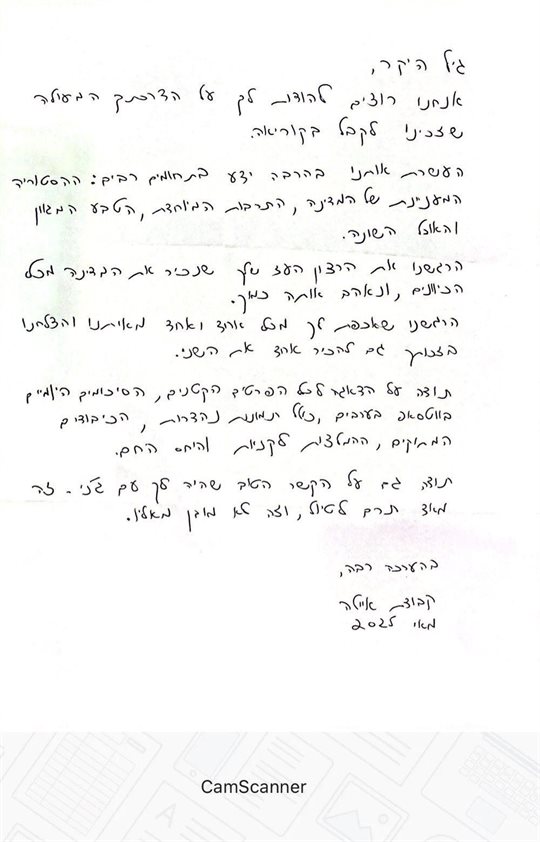 גיל היקר,
אנחנו רוצים להודות לך על הדרכתך המעולה
שזכינו לקבל בקוריאה.
העשרת אותנו בהרבה ידע בתחומים רבים: ההסטוריה
המעניינת של המדינה, התרבות המיוחדת, הטבע המגוון
והאוכל השונה.
הרגשנו את הרצון העז שלך שנכיר את המדינה מכל
הכיוונים, ונאהב אותה כמוך.
הרגשנו שאכפת לך מכל אחד ואחד מאיתנו והצלחנו
בזכותך גם להכיר אחד את השני.
תודה על הדאגה לכל הפרטים הקטנים, הסיכומים היומיים
בווטסאפ בערבים, כולל תמונות נהדרות, הכיבודים
המתוקים, ההמלצות לקניות והיחס החם.
תודה גם על הקשר הטוב שהיה לך עם ג'ני. זה
מאוד תרם לטיול, וזה לא מובן מאליו.
בהערכה רבה,
קבוצת איילה
מאי 2025
CamScanner